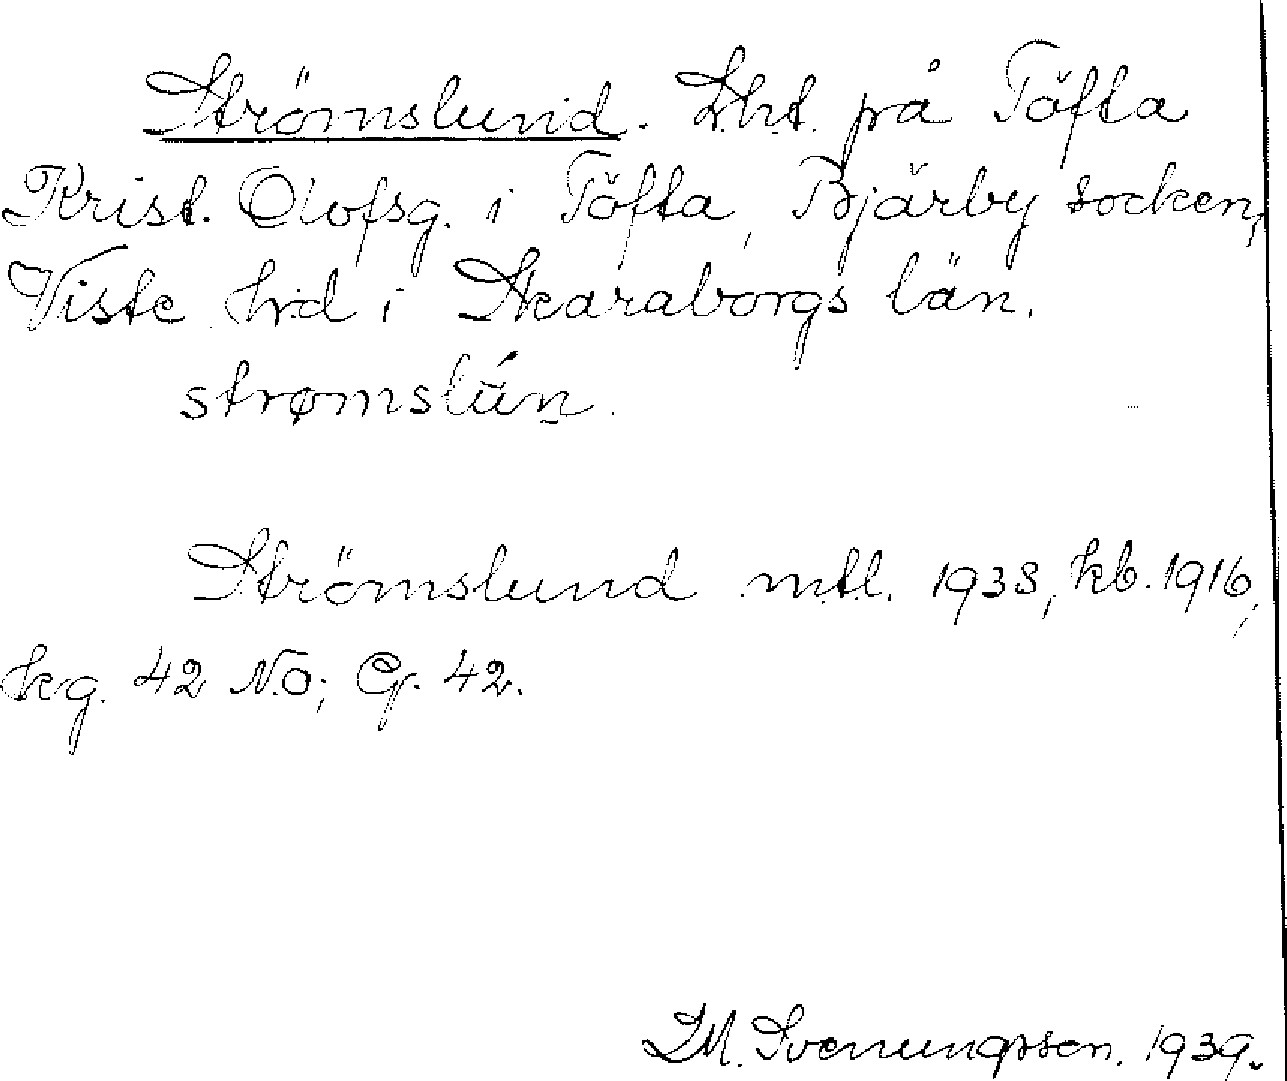 Strömslund. Lht. på Töfta
Krist. Olofsg. i Töfta, Bjärby socken,
Viste hrd i Skaraborgs län.
strømslún.
Strömslund mtl. 1938, kb. 1916,
hkg. 42 NO; G. 42.
I.M. Svenungsson. 1939.